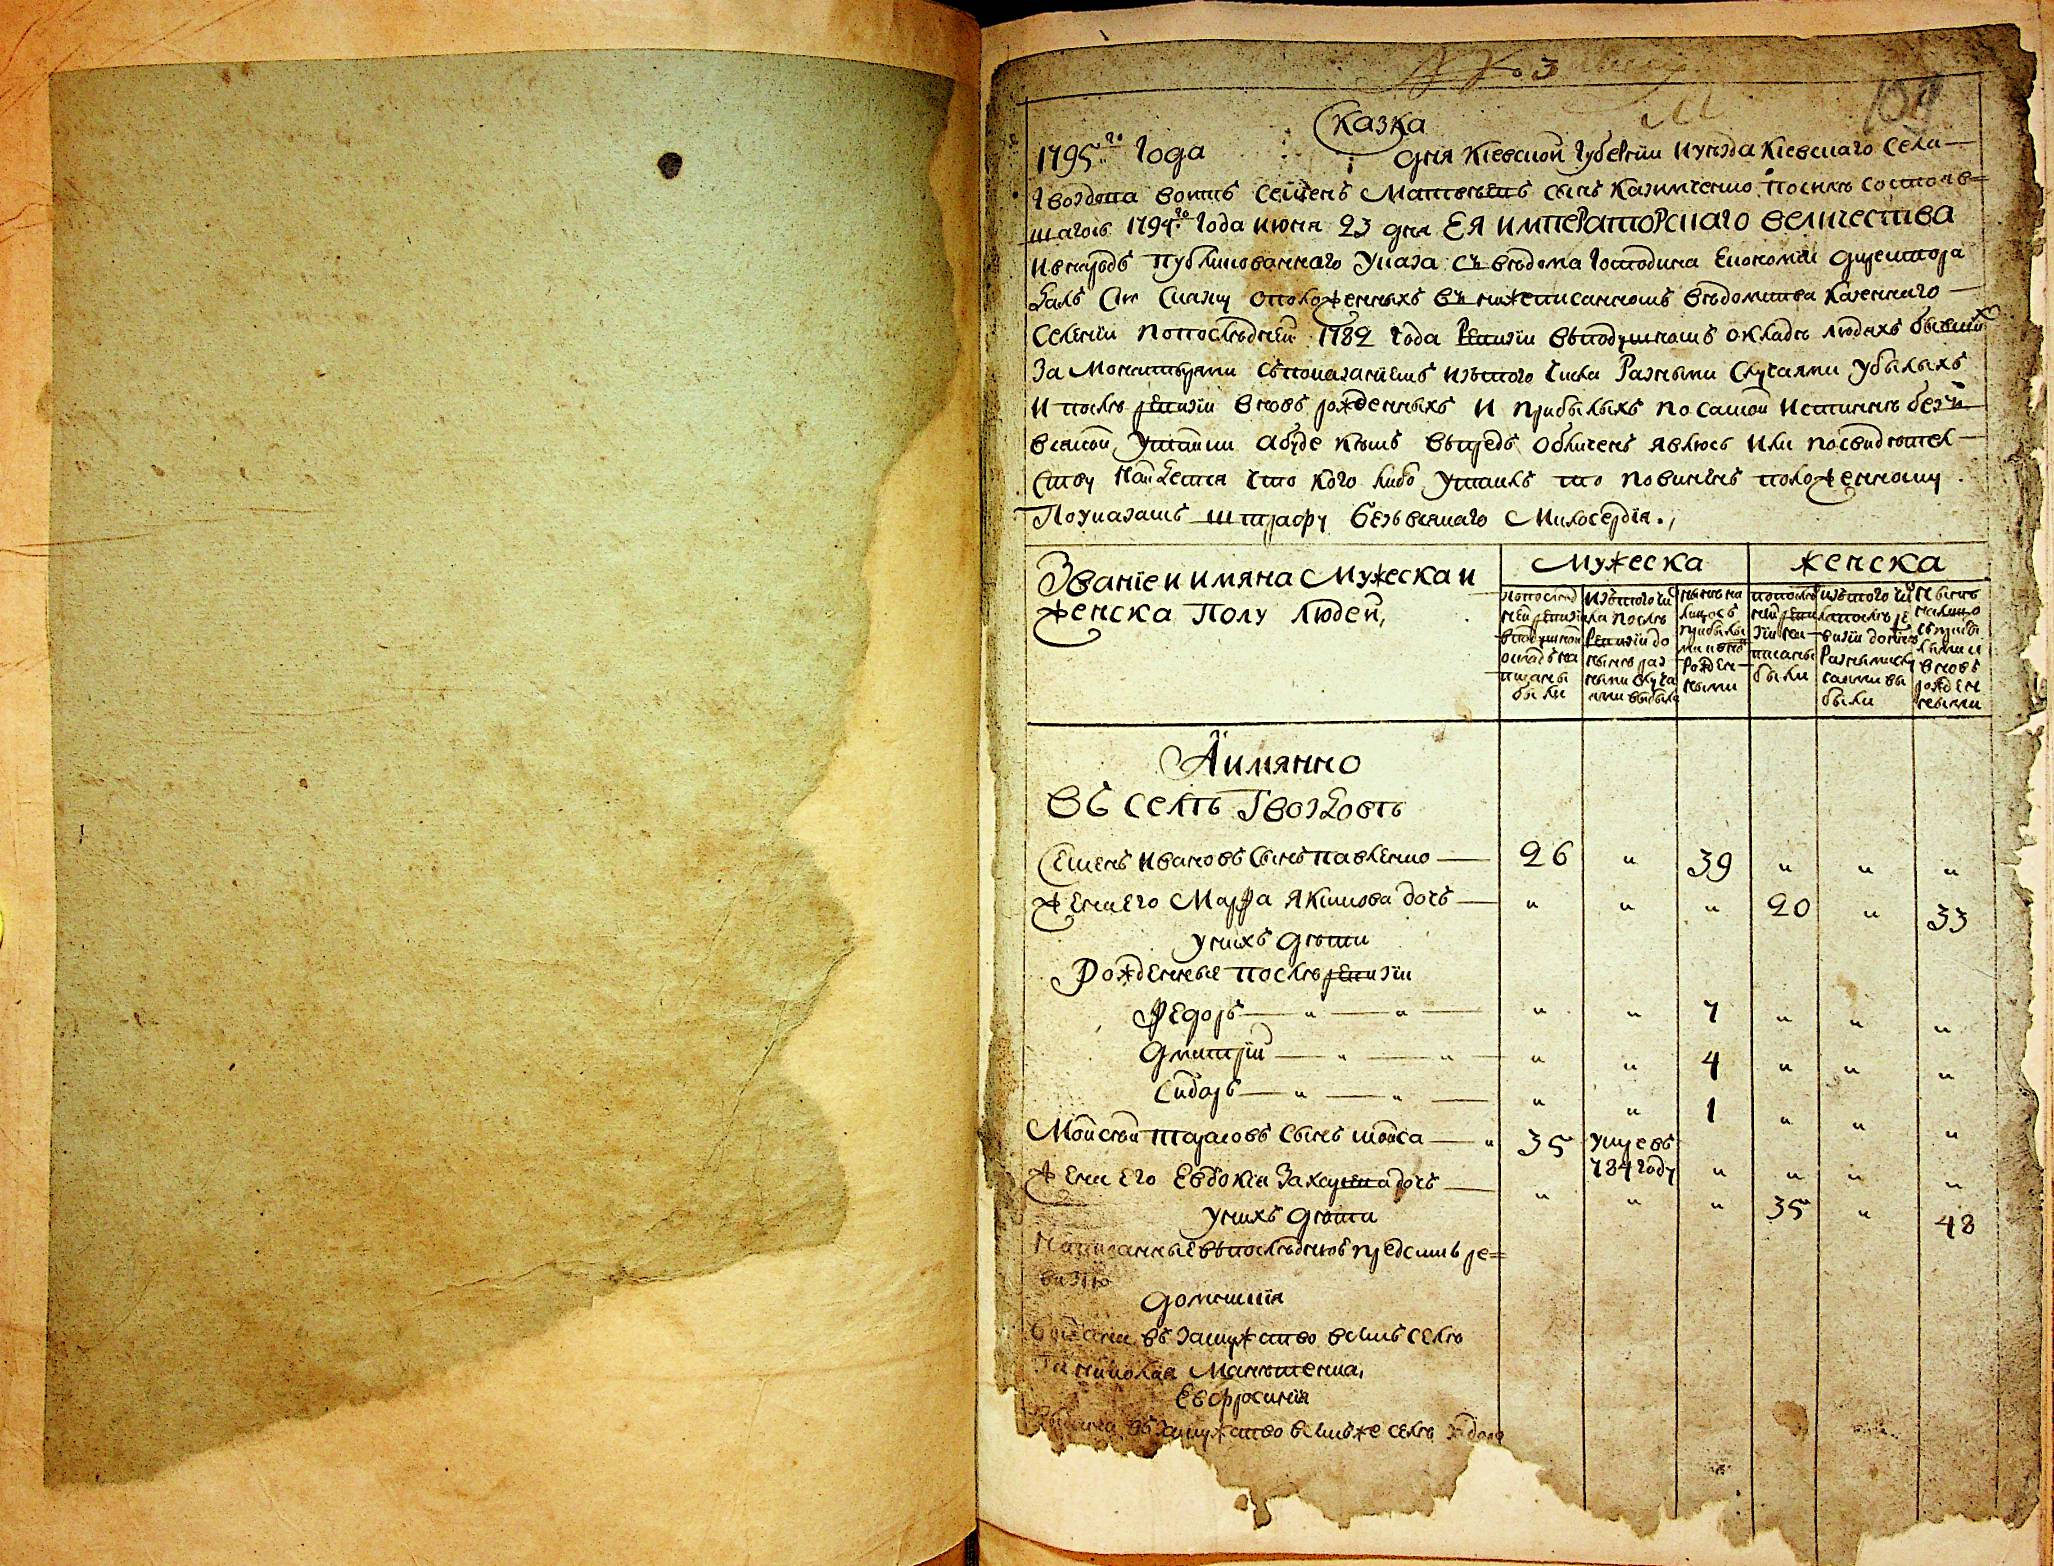 Сказка
1795го Года дня Кіевской Губерніи и уезда Кіевскаго Села
Гвоздова воитъ Семенъ Матвеевъ сынъ после состояв=
шагось 1794го Года июня 23 дня ЕЯ ИМПЕРАТОРСКАГО ВЕЛИЧЕСТВА
и внародъ публикованнаго указа съ ведома Господина Економіи директора
далъ Сию Скаску оположенныхъ въ нижеписанномъ ведомства Казеннаго
Селеніи попоследней 1782 года Ревизіи въподушномъ окладе людехъ бывшихъ
За Монастырями съпоказаніемъ изътого числа Разными Случаями убылыхъ
И после ревизіи вновь рожденныхъ И прибылыхъ по самой Истинне безъ
всякой Утайки абуде кемъ въпредь обличенъ явлюсь Или посвидетел
ству Найдется что кого либо Утаилъ то повиненъ положенному
Поуказамъ штрафу безъвсякаго Милосердія.
Званіе и имяна Мужеска и
женска Полу людей,
Мужеска
женска
попослед
ней ревизіи
въподушной
окладъ на
писаны
были
изътого чи
ла после
Ревизіи до
ныне раз
ными случа
ями выбыло
ныне на
лицось
прибылы
ми и вновь
рожден
ными
попослед
ней реви
зіи на
писаны
были
изътого чи
ла после ре
визіи доныне
Разными слу
чаями вы
были
Ныне
налицо
съприбы
лыми и
вновь
рожден
ными
Аимянно
въ селе Гвоздове
Семенъ Ивановъ Сынъ павленко — 26 " 39 " " "
жена Его Марфа Якимова дочь — " " " 20 " 33
унихъ дети
Рожденные после ревизіи
Федоръ — " — " — " " 7 " " "
Дмитрій — " — " — " " 4 " " "
Сидоръ — " — " — " " 1 " " "
Мойсей тарасовъ Сынъ — " 35 умре въ 784 году " " " "
жена Его Евдокія Захарьева дочь — " " " 35 " 48
унихъ дети
Написанные въпоследнюю предсимъ ре=
визію
Домникія
выдана въ замужство всимъ селе
Евфросинія
Выдана въ замужство всимъже селе